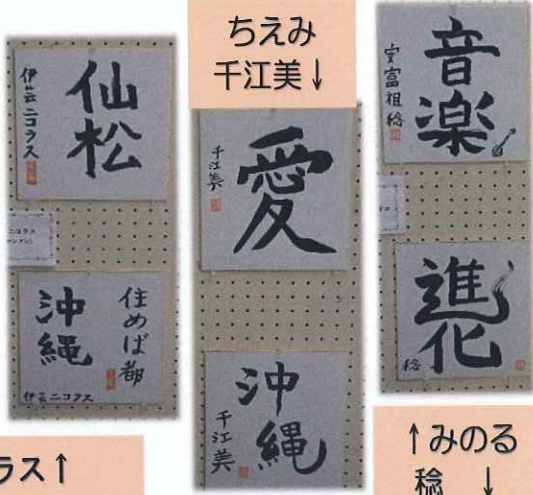 仙松
伊芸ニコラス
住めば都
沖縄
伊芸ニコラス
ラス↑
ちえみ
千江美↓
愛
千江美
沖縄
千江美
音楽
安富祖稔
進化
稔
↑みのる
稔 ↓